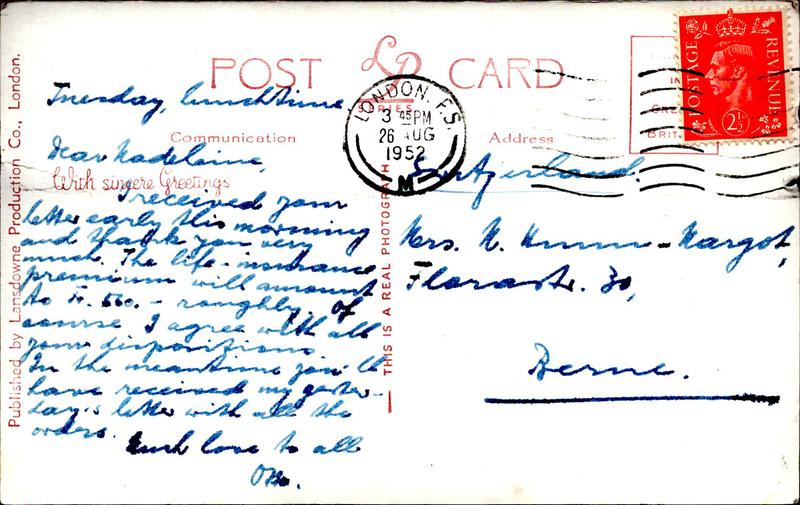 POST CARD
LP
SERIES
Communication
Address
With sincere Greetings
Published by Lansdowne Production Co., London.
THIS IS A REAL PHOTOGRAPH
LONDON. F.S.
3 45 PM
26 AUG
1952
M
POSTAGE
REVENUE
2½
IN
GRE
BRIT
Tuesday, lunchtime
Dear Madelaine,
I received your
letter early this morning
and thank you very
much. The life-insurance
premium will amount
to Fr. 560.- roughly. Of
course I agree with all
your dispositions.
In the meantime you'll
have received my yester-
day's letter with all the
orders.
Much love to all
Switzerland.
Mrs. M.
-Margot,
Florastr. 30,
Berne.